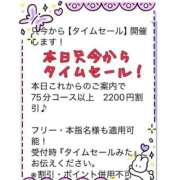 只今から【タイムセール】開催
します！
本日只今から
タイムセール！
本日これからのご案内で
75分コース以上　2200円割
引♪
フリー・本指名様も適用可
能！
受付時『タイムセールみた』と
お伝えください。
※割引・ポイント併用不可